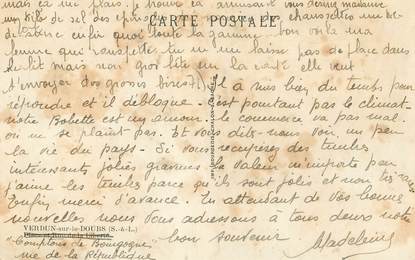 mais ça me plaît. Je trouve ça amusant vous devriez madame
CARTE POSTALE
enfin quoi toute la gamme. bon voilà ma
femme qui rouspette tu ne me laisse pas de place dans
mais non quoi elle veut
t'envoyer des grosses bises. Il a mis bien du temps pour
répondre et il débloque. C'est pourtant pas le climat
notre Bobette est un amour. le commerce va pas mal.
on ne se plaint pas. Et vous dites-nous voir, un peu
la vie du pays. Si vous récupérez des timbres
intéressants jolies gravures la valeur m'importe peu
j'aime les timbres parce qu'ils sont jolis et non
Enfin merci d'avance. En attendant de vos bonnes
nouvelles nous vous adressons à tous deux notre
bon souvenir
Madeleine
VERDUN-sur-le-DOUBS (S.-&-L.)
Place et Rue de la Liberté
"Comptoirs de Bourgogne"
rue de la République